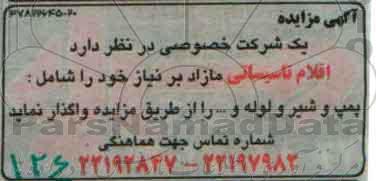 آگهی مزایده
یک شرکت خصوصی در نظر دارد
اقلام تاسیساتی مازاد بر نیاز خود را شامل :
پمپ و شیر و لوله و ... را از طریق مزایده واگذار نماید
شماره تماس جهت هماهنگی
۲۲۱۹۲۸۴۷ - ۲۲۱۹۷۹۸۲
ParsNamadData